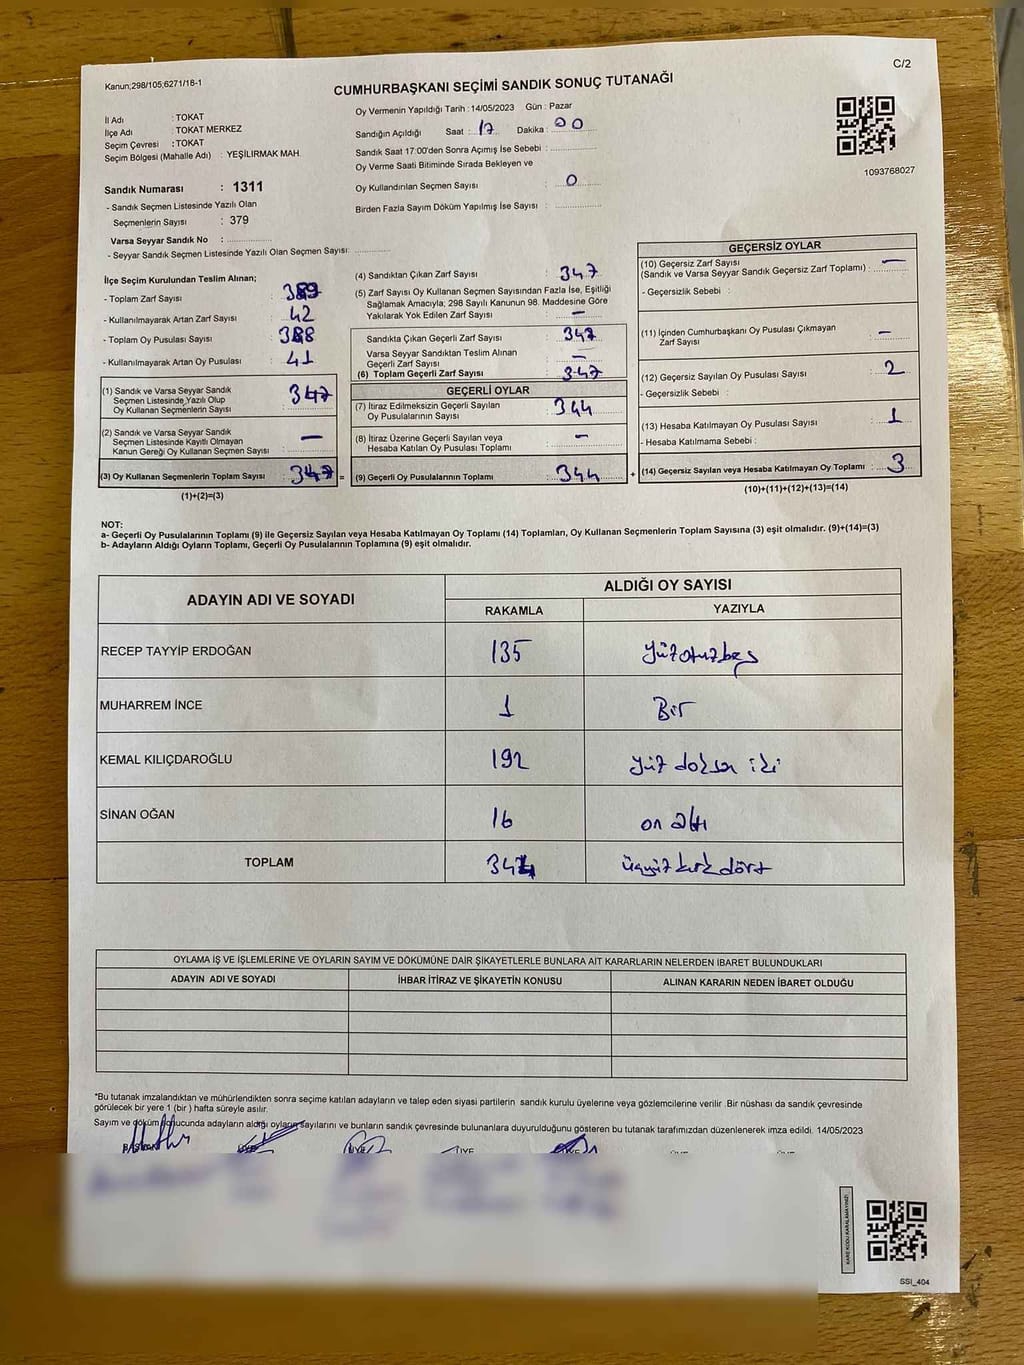 Kanun;298/105;6271/16-1
C/2
CUMHURBAŞKANI SEÇİMİ SANDIK SONUÇ TUTANAĞI
İl Adı : TOKAT
İlçe Adı : TOKAT MERKEZ
Seçim Çevresi : TOKAT
Seçim Bölgesi (Mahalle Adı) : YEŞİLIRMAK MAH.
Oy Vermenin Yapıldığı Tarih : 14/05/2023 Gün : Pazar
Sandığın Açıldığı Saat : 17 Dakika : 00
Sandık Saat 17:00'den Sonra Açımış İse Sebebi :
Oy Verme Saati Bitiminde Sırada Bekleyen ve
Oy Kullandırılan Seçmen Sayısı : 0
Birden Fazla Sayım Döküm Yapılmış İse Sayısı :
1093768027
Sandık Numarası : 1311
- Sandık Seçmen Listesinde Yazılı Olan
Seçmenlerin Sayısı : 379
Varsa Seyyar Sandık No :
- Seyyar Sandık Seçmen Listesinde Yazılı Olan Seçmen Sayısı:
İlçe Seçim Kurulundan Teslim Alınan;
- Toplam Zarf Sayısı : 389
- Kullanılmayarak Artan Zarf Sayısı : 42
- Toplam Oy Pusulası Sayısı : 388
- Kullanılmayarak Artan Oy Pusulası : 41
(1) Sandık ve Varsa Seyyar Sandık
Seçmen Listesinde Yazılı Olup
Oy Kullanan Seçmenlerin Sayısı : 347
(2) Sandık ve Varsa Seyyar Sandık
Seçmen Listesinde Kayıtlı Olmayan
Kanun Gereği Oy Kullanan Seçmen Sayısı : —
(3) Oy Kullanan Seçmenlerin Toplam Sayısı : 347 =
(1)+(2)=(3)
(4) Sandıktan Çıkan Zarf Sayısı : 347
(5) Zarf Sayısı Oy Kullanan Seçmen Sayısından Fazla İse, Eşitliği
Sağlamak Amacıyla; 298 Sayılı Kanunun 98. Maddesine Göre
Yakılarak Yok Edilen Zarf Sayısı : —
Sandıkta Çıkan Geçerli Zarf Sayısı : 347
Varsa Seyyar Sandıktan Teslim Alınan
Geçerli Zarf Sayısı : —
(6) Toplam Geçerli Zarf Sayısı : 347
GEÇERLİ OYLAR
(7) İtiraz Edilmeksizin Geçerli Sayılan
Oy Pusulalarının Sayısı : 344
(8) İtiraz Üzerine Geçerli Sayılan veya
Hesaba Katılan Oy Pusulası Toplamı : —
(9) Geçerli Oy Pusulalarının Toplamı : 344 +
GEÇERSİZ OYLAR
(10) Geçersiz Zarf Sayısı : —
(Sandık ve Varsa Seyyar Sandık Geçersiz Zarf Toplamı) :
- Geçersizlik Sebebi :
(11) İçinden Cumhurbaşkanı Oy Pusulası Çıkmayan
Zarf Sayısı : —
(12) Geçersiz Sayılan Oy Pusulası Sayısı : 2
- Geçersizlik Sebebi :
(13) Hesaba Katılmayan Oy Pusulası Sayısı : 1
- Hesaba Katılmama Sebebi :
(14) Geçersiz Sayılan veya Hesaba Katılmayan Oy Toplamı : 3
(10)+(11)+(12)+(13)=(14)
NOT:
a- Geçerli Oy Pusulalarının Toplamı (9) ile Geçersiz Sayılan veya Hesaba Katılmayan Oy Toplamı (14) Toplamları, Oy Kullanan Seçmenlerin Toplam Sayısına (3) eşit olmalıdır. (9)+(14)=(3)
b- Adayların Aldığı Oyların Toplamı, Geçerli Oy Pusulalarının Toplamına (9) eşit olmalıdır.
ADAYIN ADI VE SOYADI ALDIĞI OY SAYISI
RAKAMLA YAZIYLA
RECEP TAYYİP ERDOĞAN 135 yüzotuzbeş
MUHARREM İNCE 1 Bir
KEMAL KILIÇDAROĞLU 192 yüz doksan iki
SİNAN OĞAN 16 on altı
TOPLAM 344 üçyüz kırk dört
OYLAMA İŞ VE İŞLEMLERİNE VE OYLARIN SAYIM VE DÖKÜMÜNE DAİR ŞİKAYETLERLE BUNLARA AİT KARARLARIN NELERDEN İBARET BULUNDUKLARI
ADAYIN ADI VE SOYADI İHBAR İTİRAZ VE ŞİKAYETİN KONUSU ALINAN KARARIN NEDEN İBARET OLDUĞU
*Bu tutanak imzalandıktan ve mühürlendikten sonra seçime katılan adayların ve talep eden siyasi partilerin sandık kurulu üyelerine veya gözlemcilerine verilir .Bir nüshası da sandık çevresinde
görülecek bir yere 1 (bir ) hafta süreyle asılır.
Sayım ve döküm sonucunda adayların aldığı oyların sayılarını ve bunların sandık çevresinde bulunanlara duyurulduğunu gösteren bu tutanak tarafımızdan düzenlenerek imza edildi. 14/05/2023
BAŞKAN ÜYE ÜYE ÜYE ÜYE
KARE KODU KARALAMAYINIZ!
SSI_404